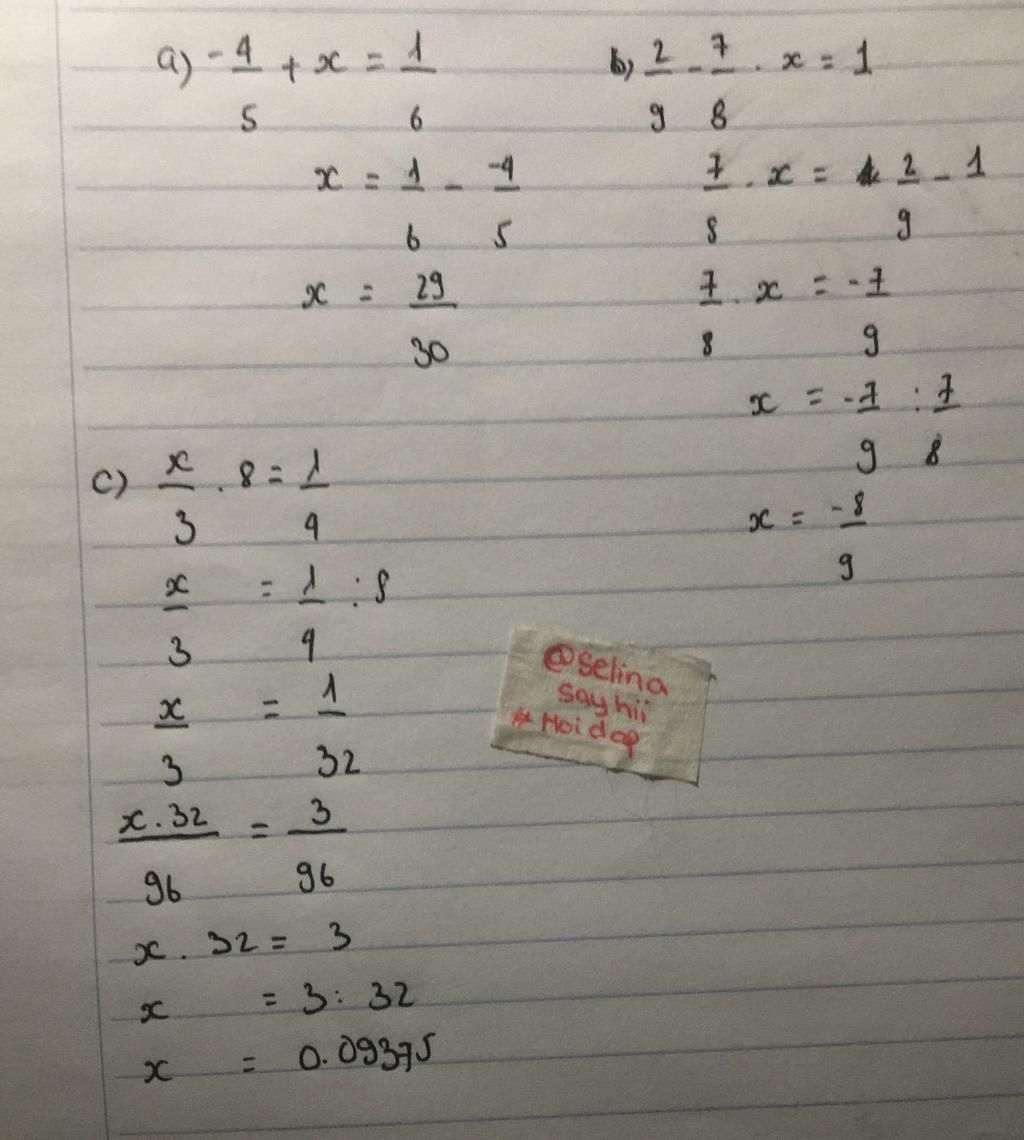 a) -4/5 + x = 1/6
x = 1/6 - -4/5
x = 29/30
b) 2/9 - 7/8 . x = 1
7/8 . x = 2/9 - 1
7/8 . x = -7/9
x = -7/9 : 7/8
x = -8/9
c) x/3 . 8 = 1/4
x/3 = 1/4 : 8
x/3 = 1/32
x.32/96 = 3/96
x . 32 = 3
x = 3 : 32
x = 0.09375
@selina
sayhii
* Hoidap